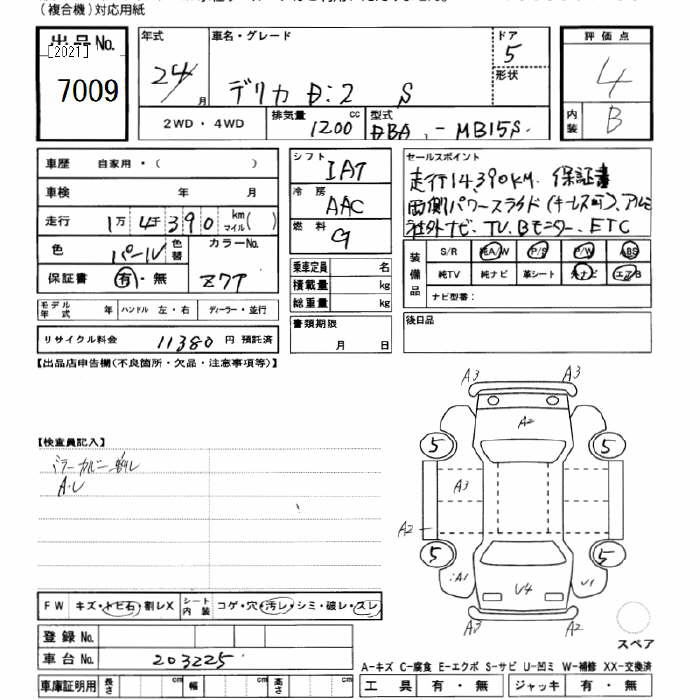 (複合機)対応用紙
出品No.
[2021]
7009
年式
24 月
車名・グレード
デリカ D:2 S
ドア
5
形状
評価点
4
内装
B
2WD・4WD
排気量 cc
1200
型式
DBA - MB15S
車歴 自家用・( )
車検 年 月
走行 1万 4千 390 km マイル ( )
色 パール 色替 カラーNo.
保証書 有・無 Z7T
モデル年式 年 ハンドル 左・右 ディーラー・並行
リサイクル料金 11380 円 預託済
シフト IAT
冷房 AAC
燃料 G
乗車定員 名
積載量 kg
総重量 kg
書類期限
月 日
セールスポイント
走行14,390KM. 保証書
両側パワースライド(キーレス可)、アルミ
社外ナビ、TV、Bモニター、ETC
装備品
S/R 純A/W P/S P/W ABS
純TV 純ナビ 革シート 外ナビ エアB
ナビ型番:
後日品
【出品店申告欄(不良箇所・欠品・注意事項等)】
【検査員記入】
A・U
A3 A3
A2
5 5
A3
A2
5 5
A1 U1
U4
A3 A3
スペア
FW キズ・トビ石・割レX シート内装 コゲ・穴・汚レ・シミ・破レ・スレ
登録No.
車台No. 203225
車庫証明用 長さ cm 幅 cm 高さ cm
A-キズ C-腐食 E-エクボ S-サビ U-凹ミ W-補修 XX-交換済
工具 有・無 ジャッキ 有・無